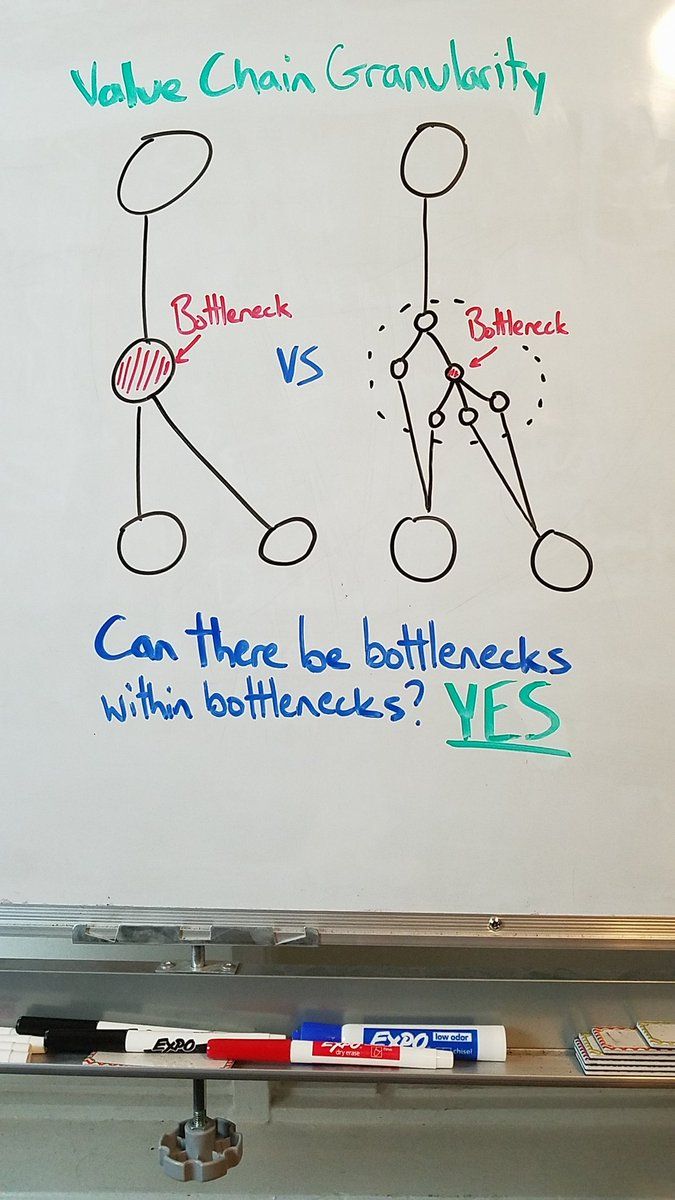 Value Chain Granularity
Bottleneck
VS
Bottleneck
Can there be bottlenecks
within bottlenecks? YES
EXPO
EXPO
dry erase
EXPO low odor
chisel